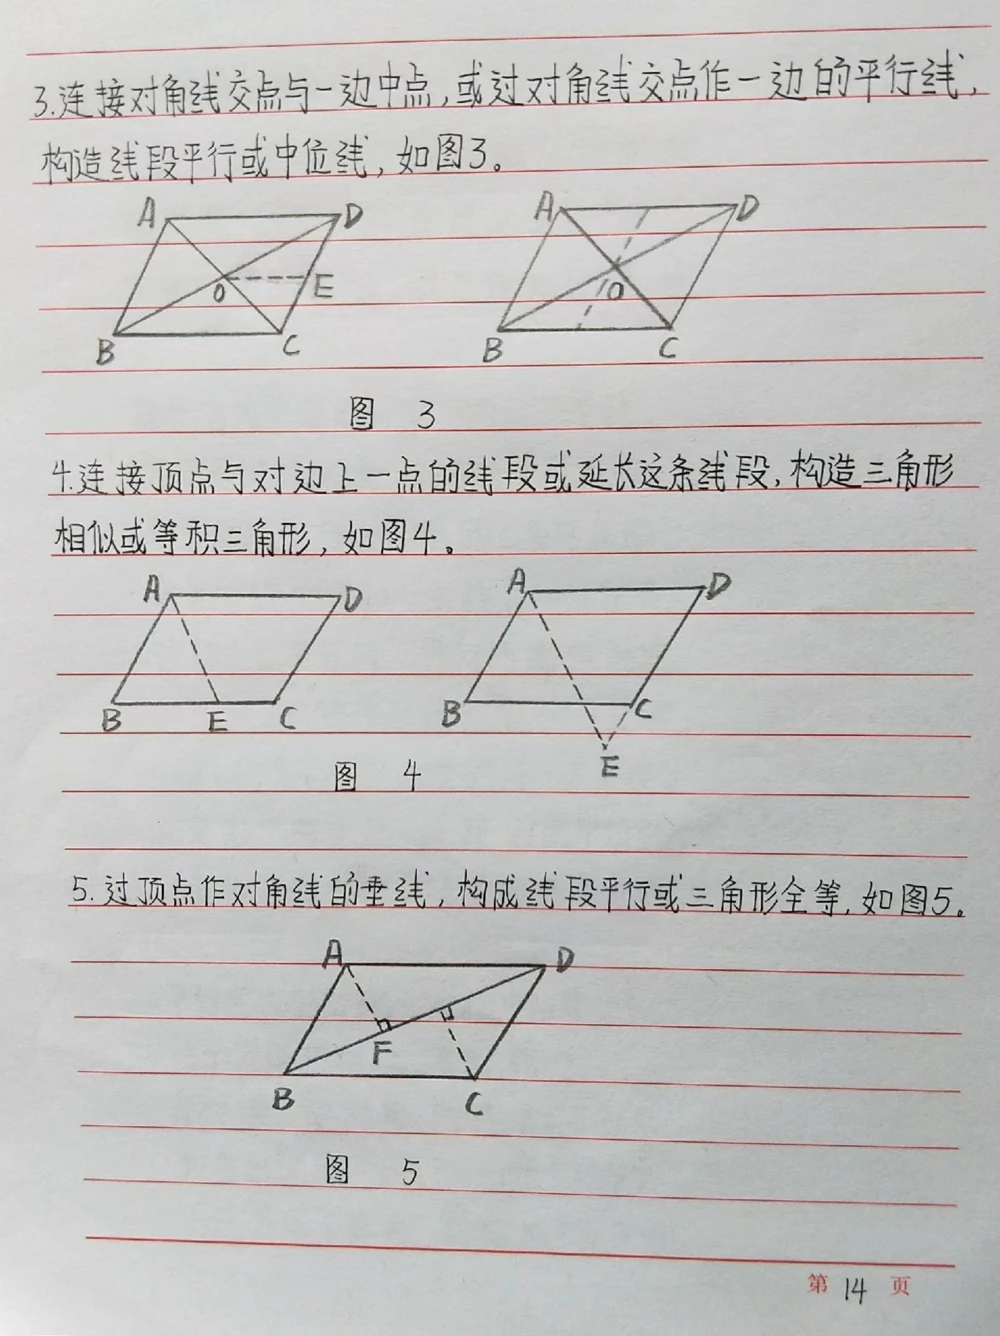 3.连接对角线交点与一边中点,或过对角线交点作一边的平行线,
构造线段平行或中位线,如图3。
A D A D
O E O
B C B C
图 3
4.连接顶点与对边上一点的线段或延长这条线段,构造三角形
相似或等积三角形,如图4。
A D A D
B E C B C
E
图 4
5.过顶点作对角线的垂线,构成线段平行或三角形全等,如图5。
A D
F
B C
图 5
第 14 页